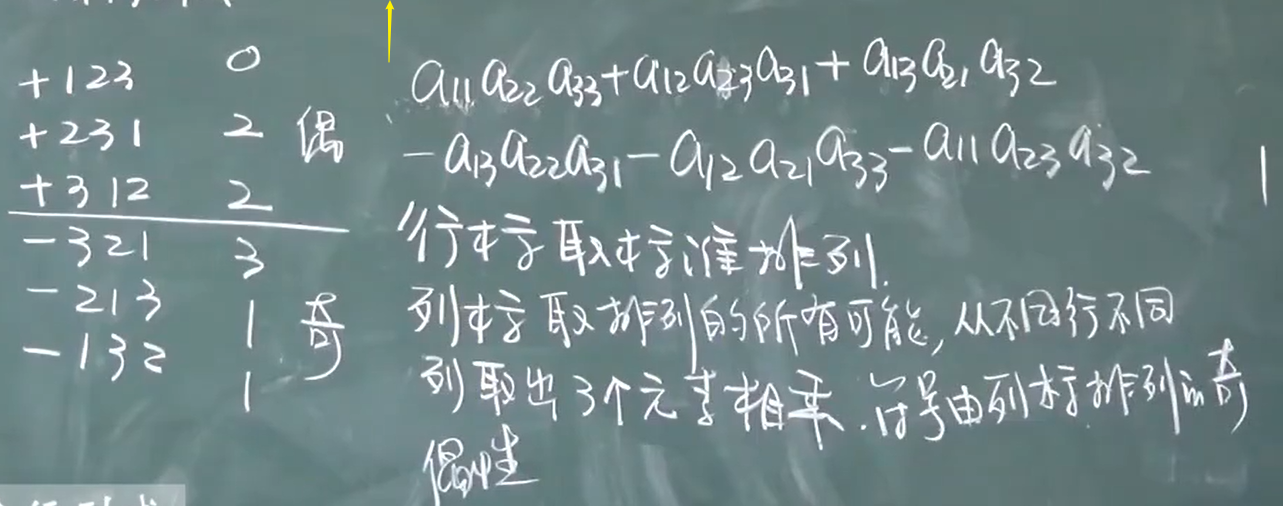 +123 0
+231 2 偶
+312 2
-321 3
-213 1 奇
-132 1
a11a22a33+a12a23a31+a13a21a32
-a13a22a31-a12a21a33-a11a23a32
行标取标准排列.
列标取排列的所有可能,从不同行不同
列取出3个元素相乘.符号由列标排列的奇
偶性